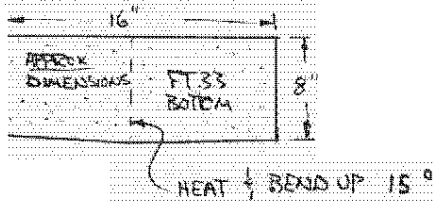 16"
APPROX
DIMENSIONS
FT.33
BOTTOM
8"
HEAT & BEND UP 15°